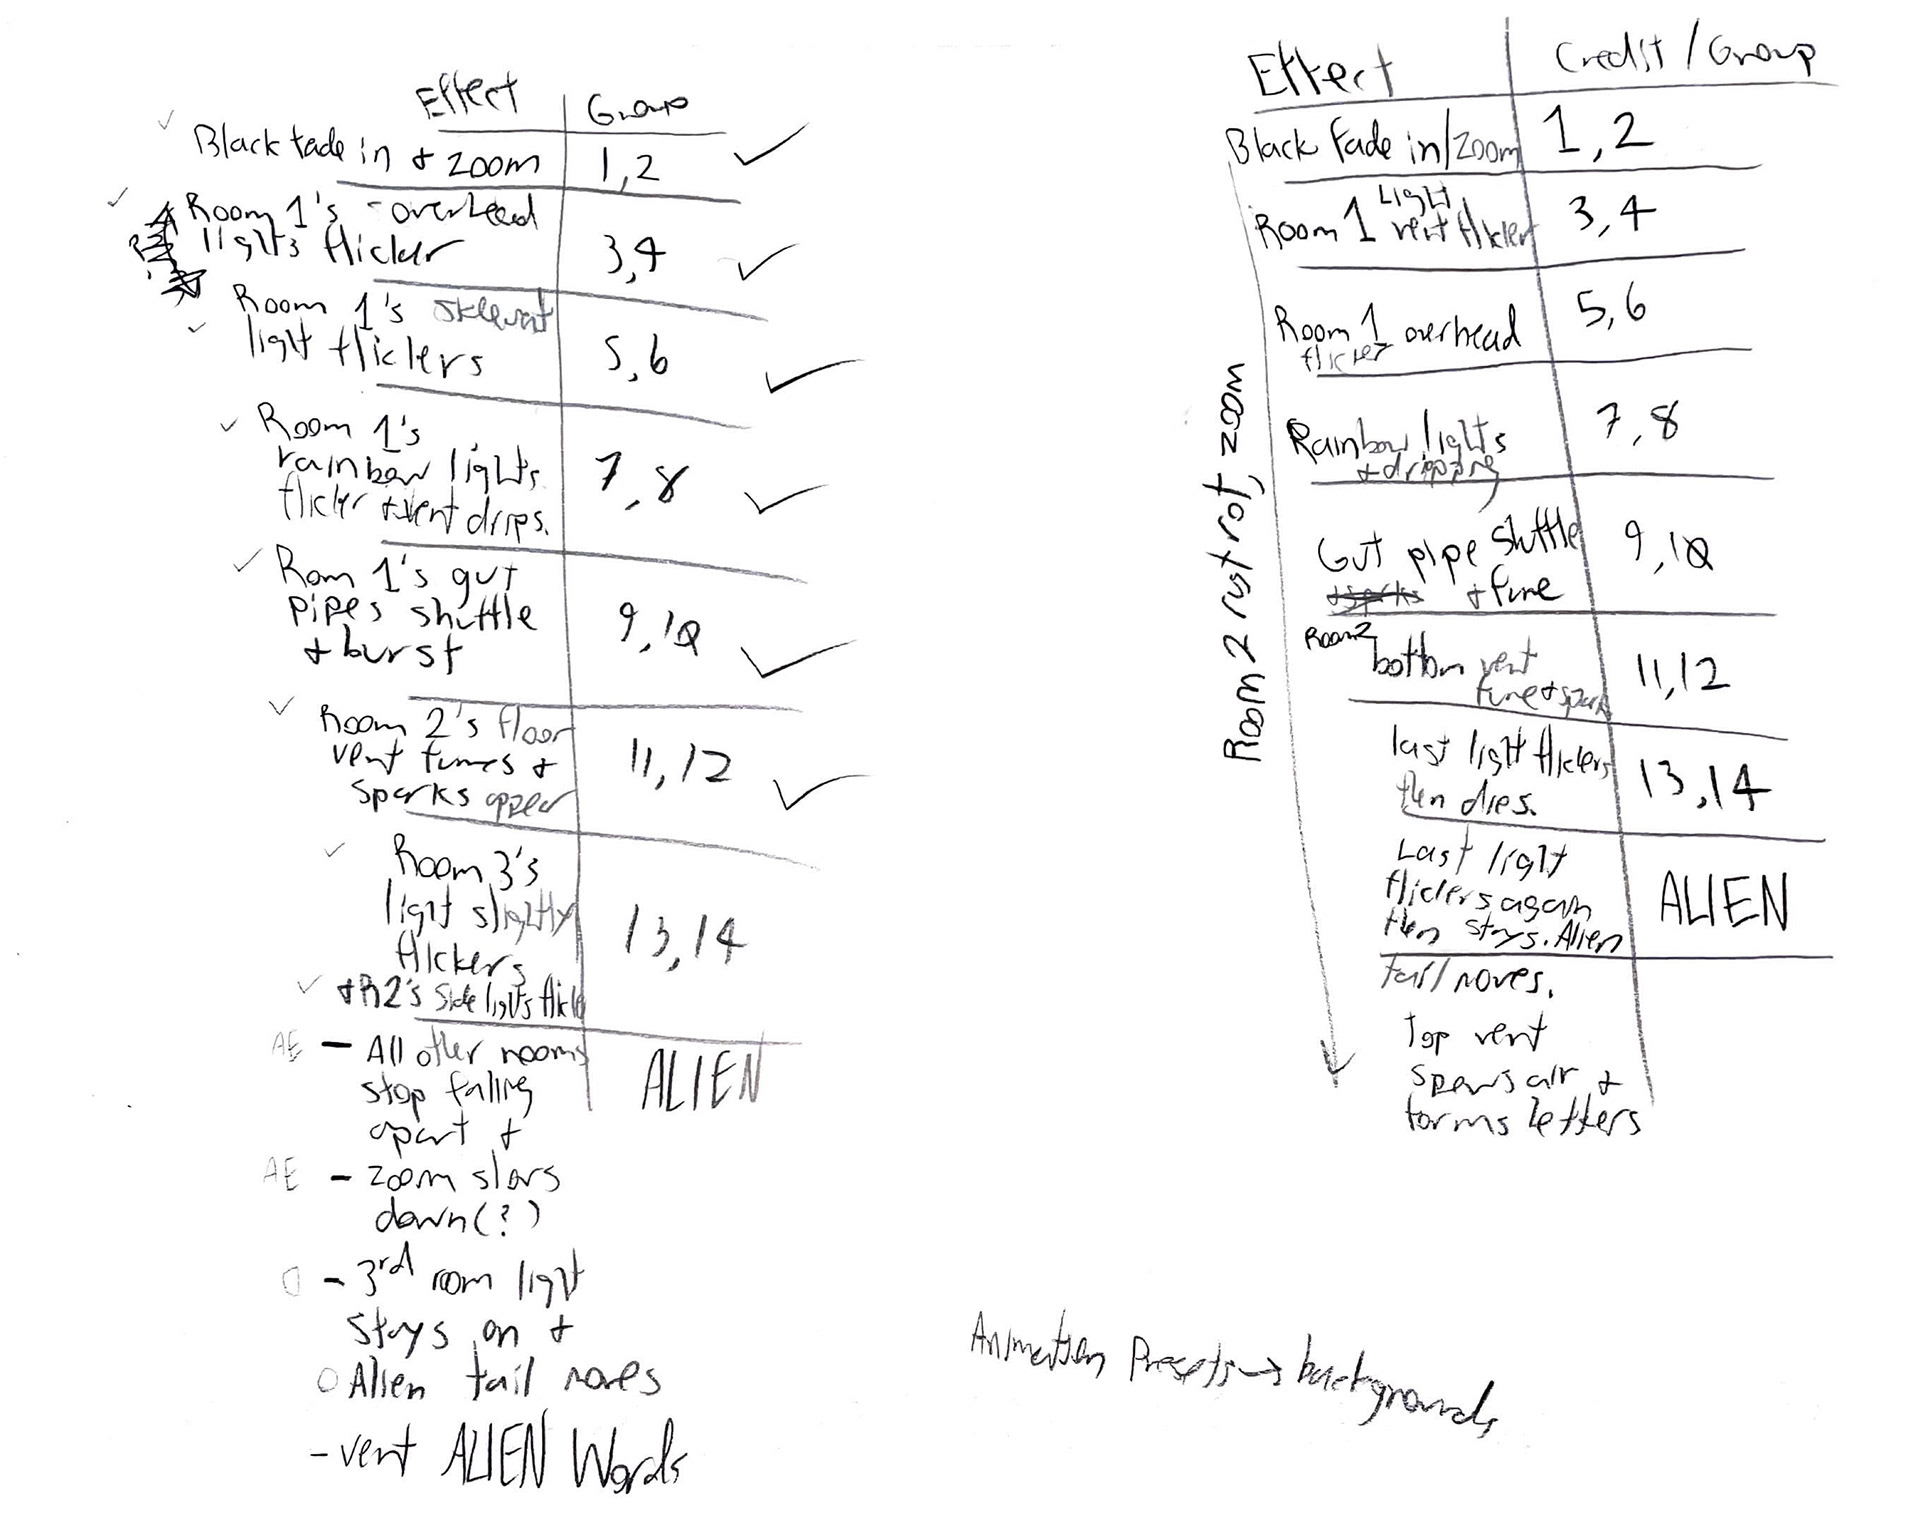 Effect Group
Black fade in + zoom 1,2
Room 1's - overhead
lights flicker 3,4
Room 1's
light flickers 5,6
Room 1's
rainbow lights 7,8
flicker + vent drips.
Rom 1's gut
pipes shuttle 9,10
+ burst
Room 2's floor
vent fumes + 11,12
sparks appear
Room 3's
light slightly 13,14
flickers
+ R2's side lights flick
AE - All other rooms ALIEN
stop falling
apart +
AE - zoom slows
down(?)
- 3rd room light
stays on +
Alien tail moves
- vent ALIEN Words
Effect Credit / Group
Black Fade in/zoom 1,2
Room 1 Light vent flicker 3,4
Room 1 overhead 5,6
flicker
Rainbow lights 7,8
+ dripping
Gut pipe shuttle 9,10
+ fume
Room 2
bottom vent 11,12
fume + spark
last light flickers 13,14
then dies.
Last light
flickers again ALIEN
then stays. Alien
tail moves.
Top vent
spews air +
forms letters
Room 2 rust rot, zoom
Animation Presets → backgrounds